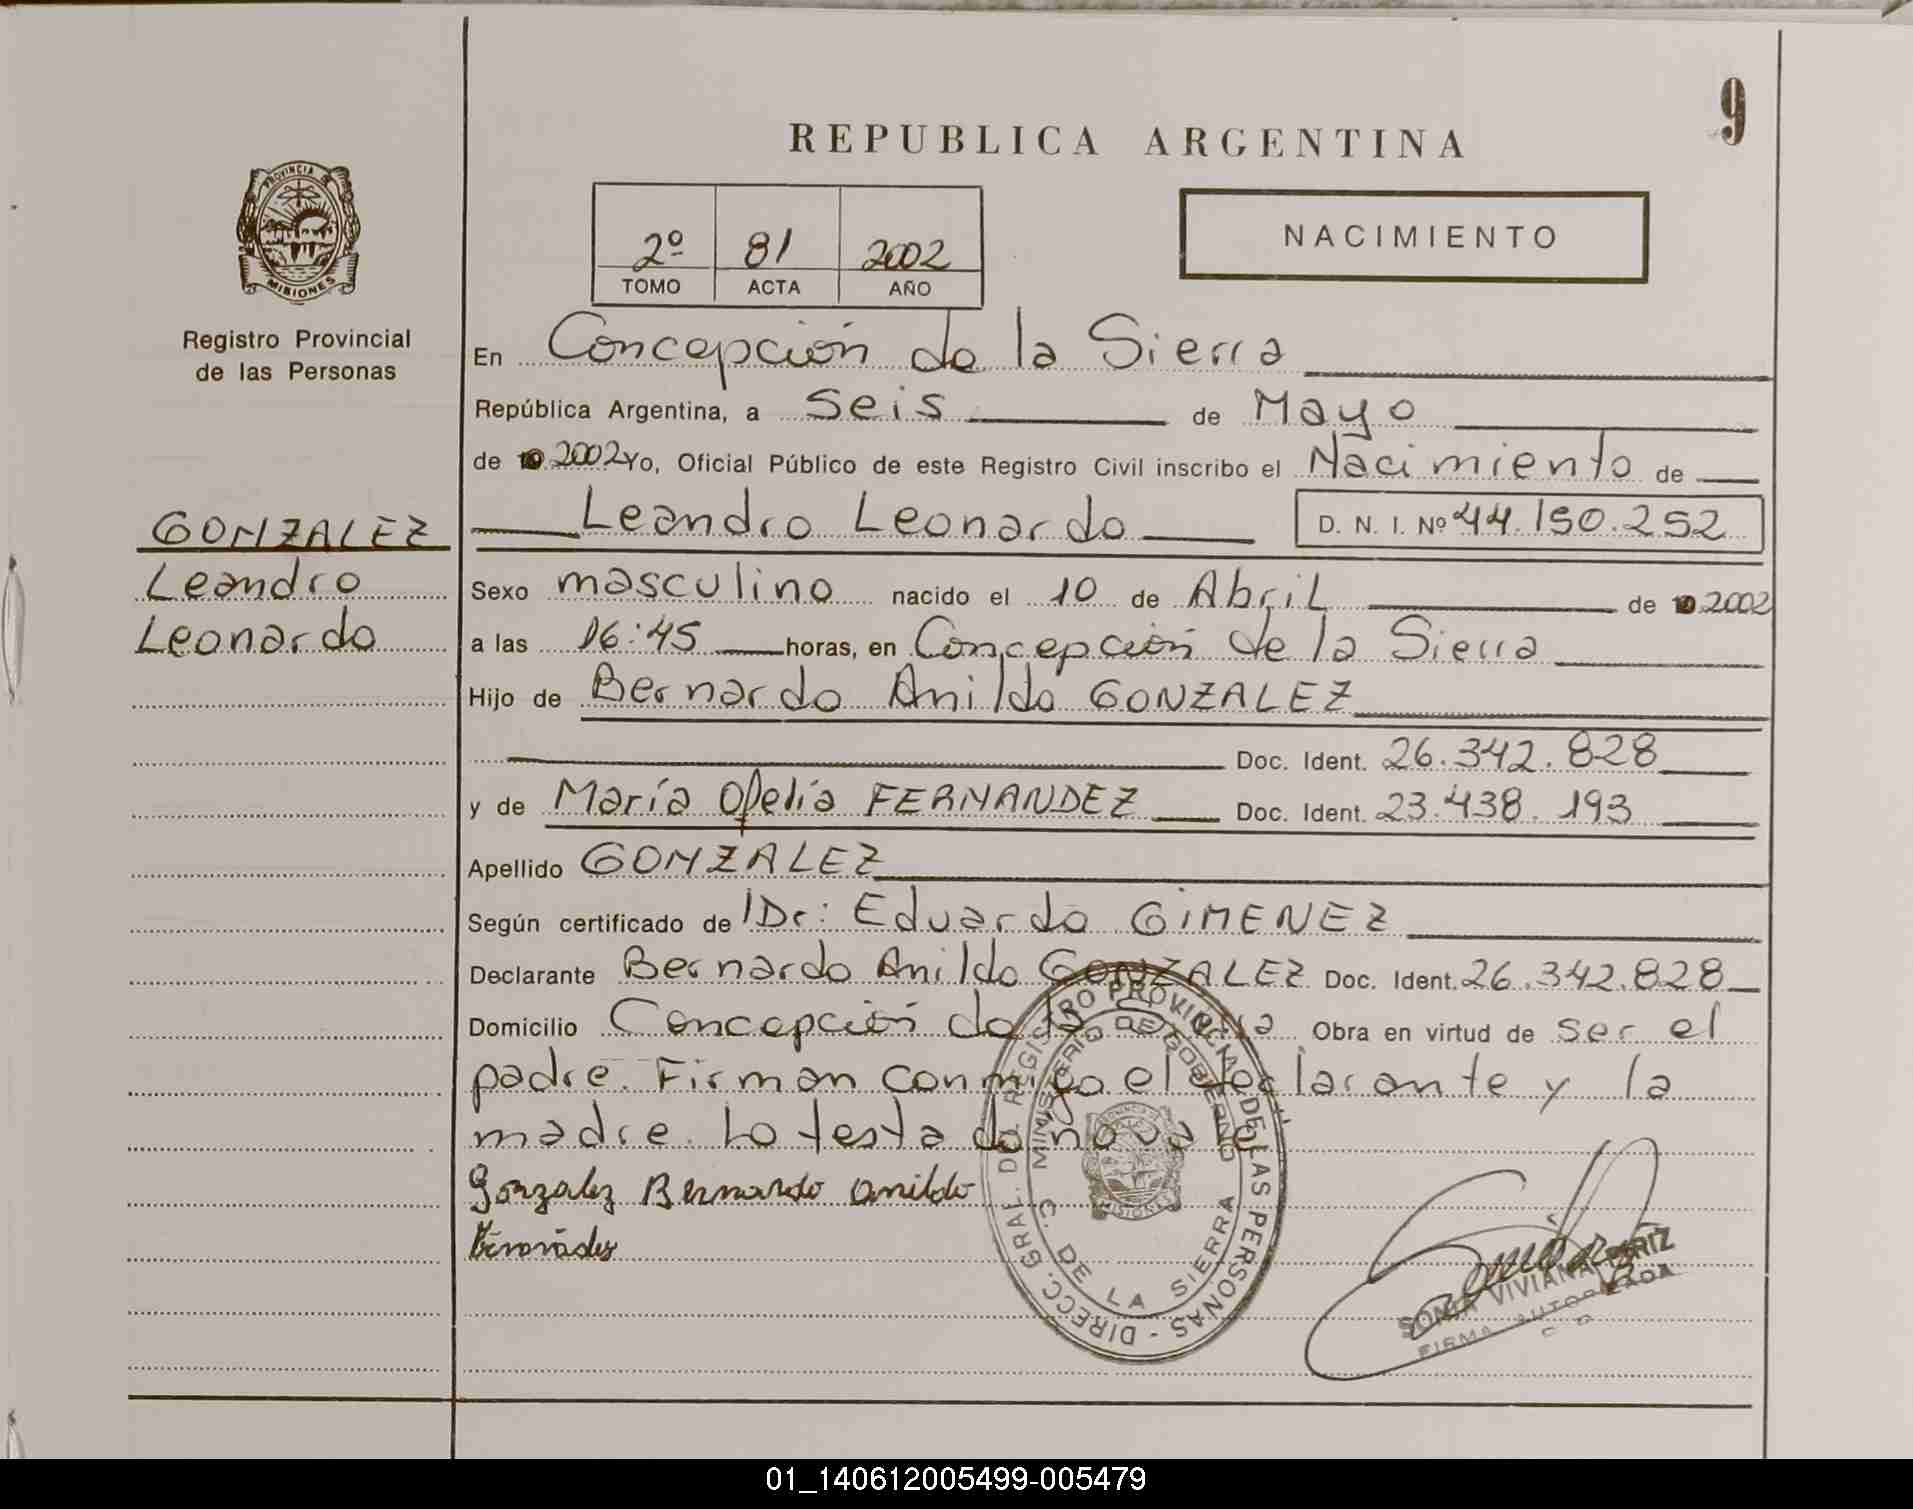 9
REPUBLICA ARGENTINA
PROVINCIA DE
MISIONES
2º 81 2002
TOMO ACTA AÑO
NACIMIENTO
Registro Provincial
de las Personas
En Concepción de la Sierra
República Argentina, a seis de Mayo
de 2002 Yo, Oficial Público de este Registro Civil inscribo el Nacimiento de
GONZALEZ
Leandro
Leonardo
Leandro Leonardo D. N. I. Nº 44.150.252
Sexo masculino nacido el 10 de Abril de 2002
a las 16:45 horas, en Concepción de la Sierra
Hijo de Bernardo Anildo GONZALEZ
Doc. Ident. 26.342.828
y de María Ofelia FERNANDEZ Doc. Ident. 23.438.193
Apellido GONZALEZ
Según certificado de Dr: Eduardo GIMENEZ
Declarante Bernardo Anildo GONZALEZ Doc. Ident. 26.342.828
Domicilio Concepción de la Obra en virtud de ser el
padre. Firman conmigo el declarante y la
madre. Lo testado no vale
Gonzalez Bernardo Anildo
DIRECC. GRAL. DEL REGISTRO PROVINCIAL DE LAS PERSONAS -
MINISTERIO DE GOBIERNO
C. DE LA SIERRA
MISIONES
SONIA VIVIANA
FIRMA AUTORIZADA
01_140612005499-005479